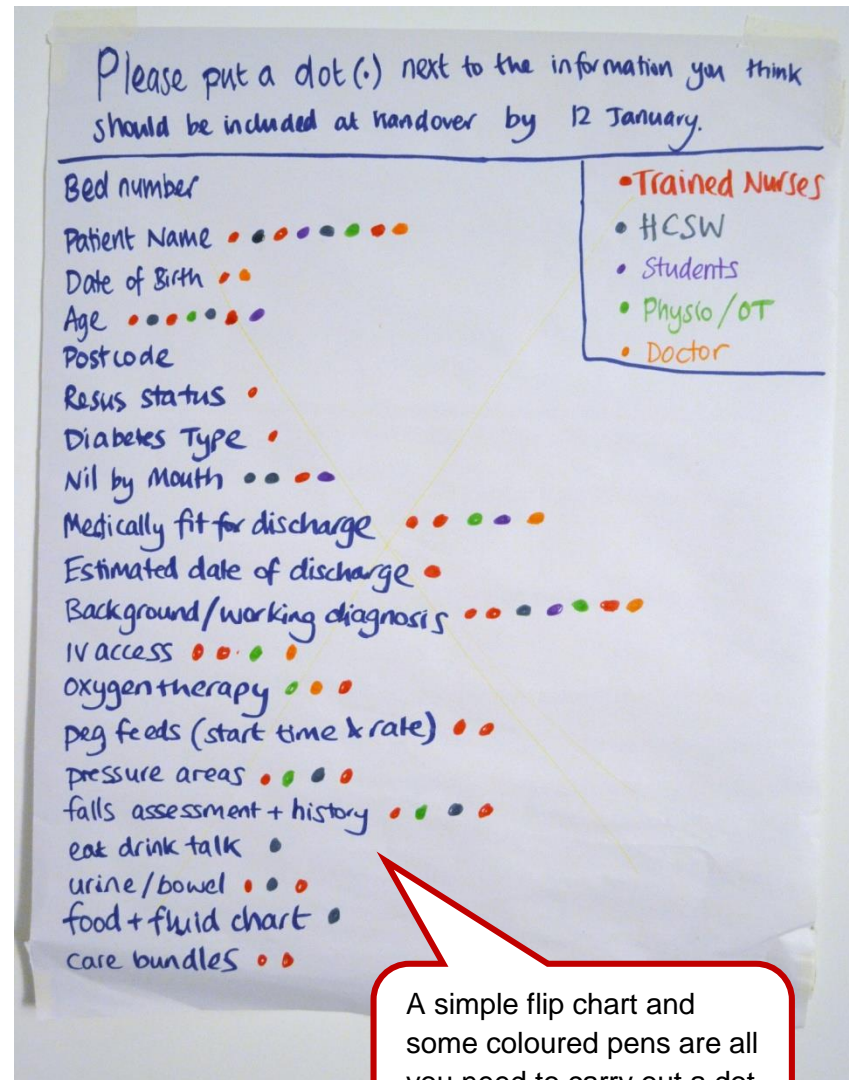 Please put a dot (·) next to the information you think
should be included at handover by 12 January.
Bed number
Patient Name
Date of Birth
Age
Postcode
Resus status
Diabetes Type
Nil by Mouth
Medically fit for discharge
Estimated date of discharge
Background/working diagnosis
IV access
oxygen therapy
peg feeds (start time & rate)
pressure areas
falls assessment + history
eat drink talk
urine/bowel
food + fluid chart
care bundles
• Trained Nurses
• HCSW
• Students
• Physio/OT
• Doctor
A simple flip chart and
some coloured pens are all
you need to carry out a dot